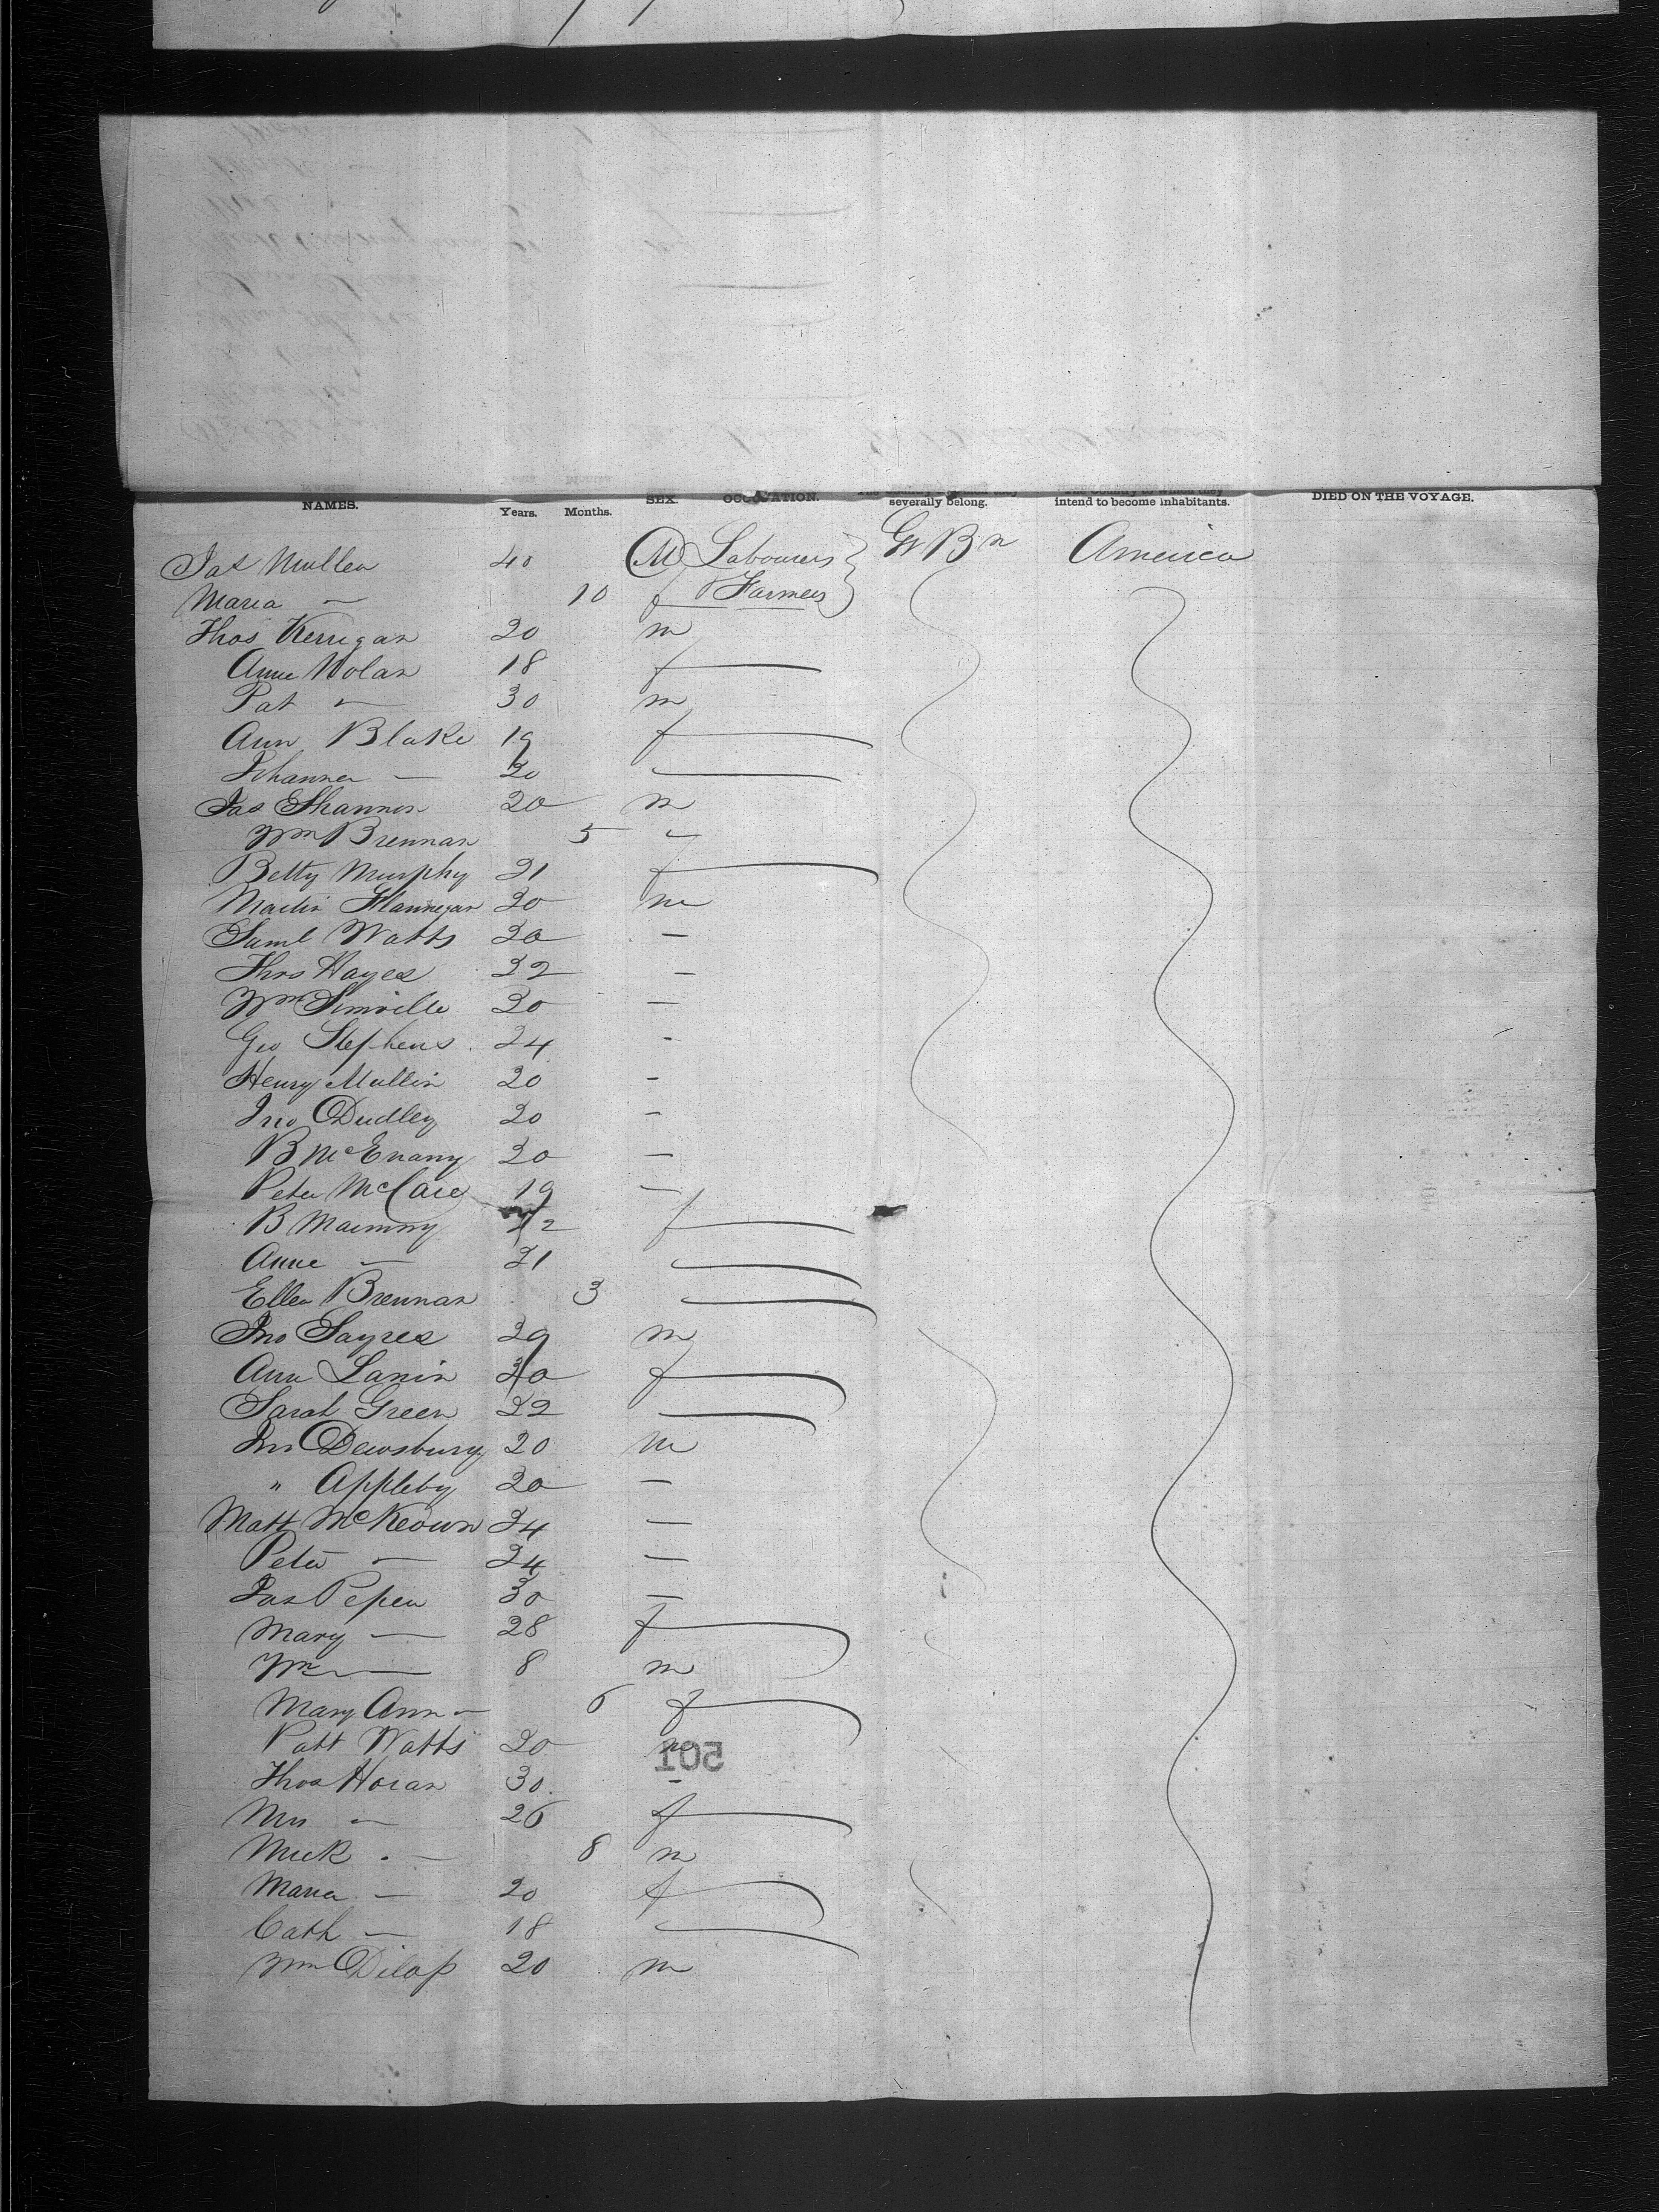 NAMES. Years. Months. SEX. OCCUPATION. severally belong. intend to become inhabitants. DIED ON THE VOYAGE.
Jas Mullen 40 M Labourers Gt Bn America
Maria — 10 f & Farmers
Thos Kerrigan 20 m
Anne Nolan 18 f
Pat — 30 m
Ann Blake 19 f
Johanna — 20
Jas Shannon 20 m
Wm Brennan 5 —
Betty Murphy 21 f
Martin Flannegan 20 m
Saml Watts 20 —
Thos Hayes 22 —
Wm 20 —
Geo Stephens 24 -
Henry Mullin 20 -
Jno Dudley 20 -
B McEnany 20 —
Peter 19 —
B 22 f
Anne — 21
Ellen Brennan 3
Jno Sayres 29 m
Ann Lanin 20 f
Sarah Green 22
Jno Dewsbury 20 m
" Appleby 20 —
Matt McKeown 24 —
Peter — 24 —
Jas Pepen 30 —
Mary — 28 f
Wm — 8 m
Mary Ann — 6 f
Patt Watts 20 m
501
Thos Horan 30. -
Mrs — 26 f
Mick — 8 m
Maria — 20 f
Cath — 18
Wm Dilap 20 m